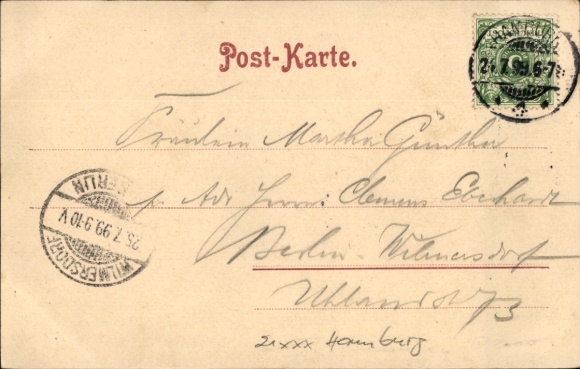 Post-Karte.
HAMBURG
7.99.6-7
Fräulein Martha Günther
p. Adr. Herrn Clemens Eberhardt
Berlin-Wilmersdorf
Uhlandstr.
WILMERSDORF
25.7.99.9-10V
BERLIN
21xxx Hamburg